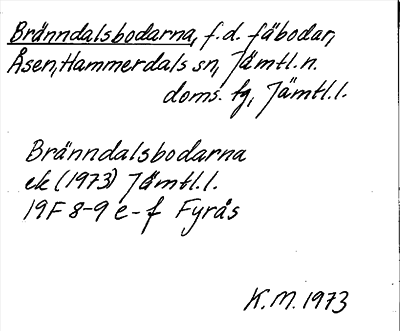 Bränndalsbodarna, f.d. fäbodar,
Åsen, Hammerdals sn, Jämtl. n.
doms. tg, Jämtl. l.
Bränndalsbodarna
ek (1973) Jämtl. l.
19F 8-9 e-f Fyrås
K.M. 1973